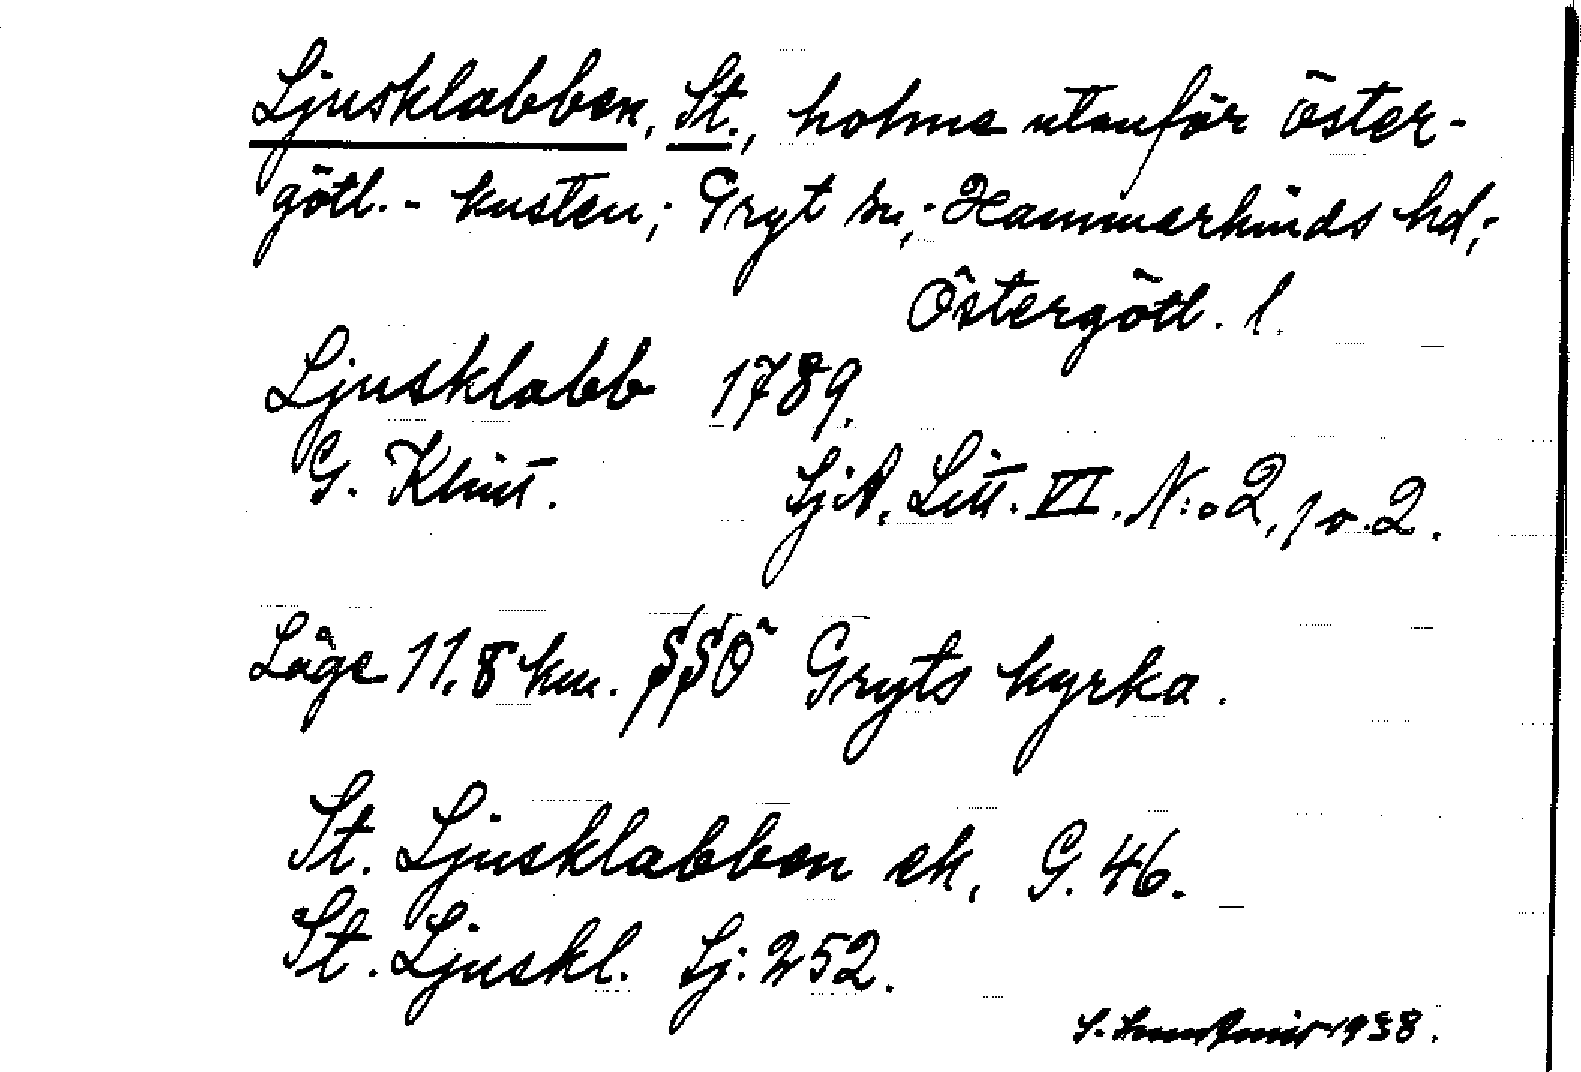 Ljusklabben, St., holme utanför öster-
götl.- kusten; Gryt sn; Hammarkinds hd;
Östergötl. l.
Ljusklabb 1789.
G. Klint. SjA. Litt. VI. N:o 2, 1 o. 2.
Läge 11,8 km. SSÖ Gryts kyrka.
St. Ljusklabben ek, G. 46.
St. Ljuskl. Sj: 252.
1938.